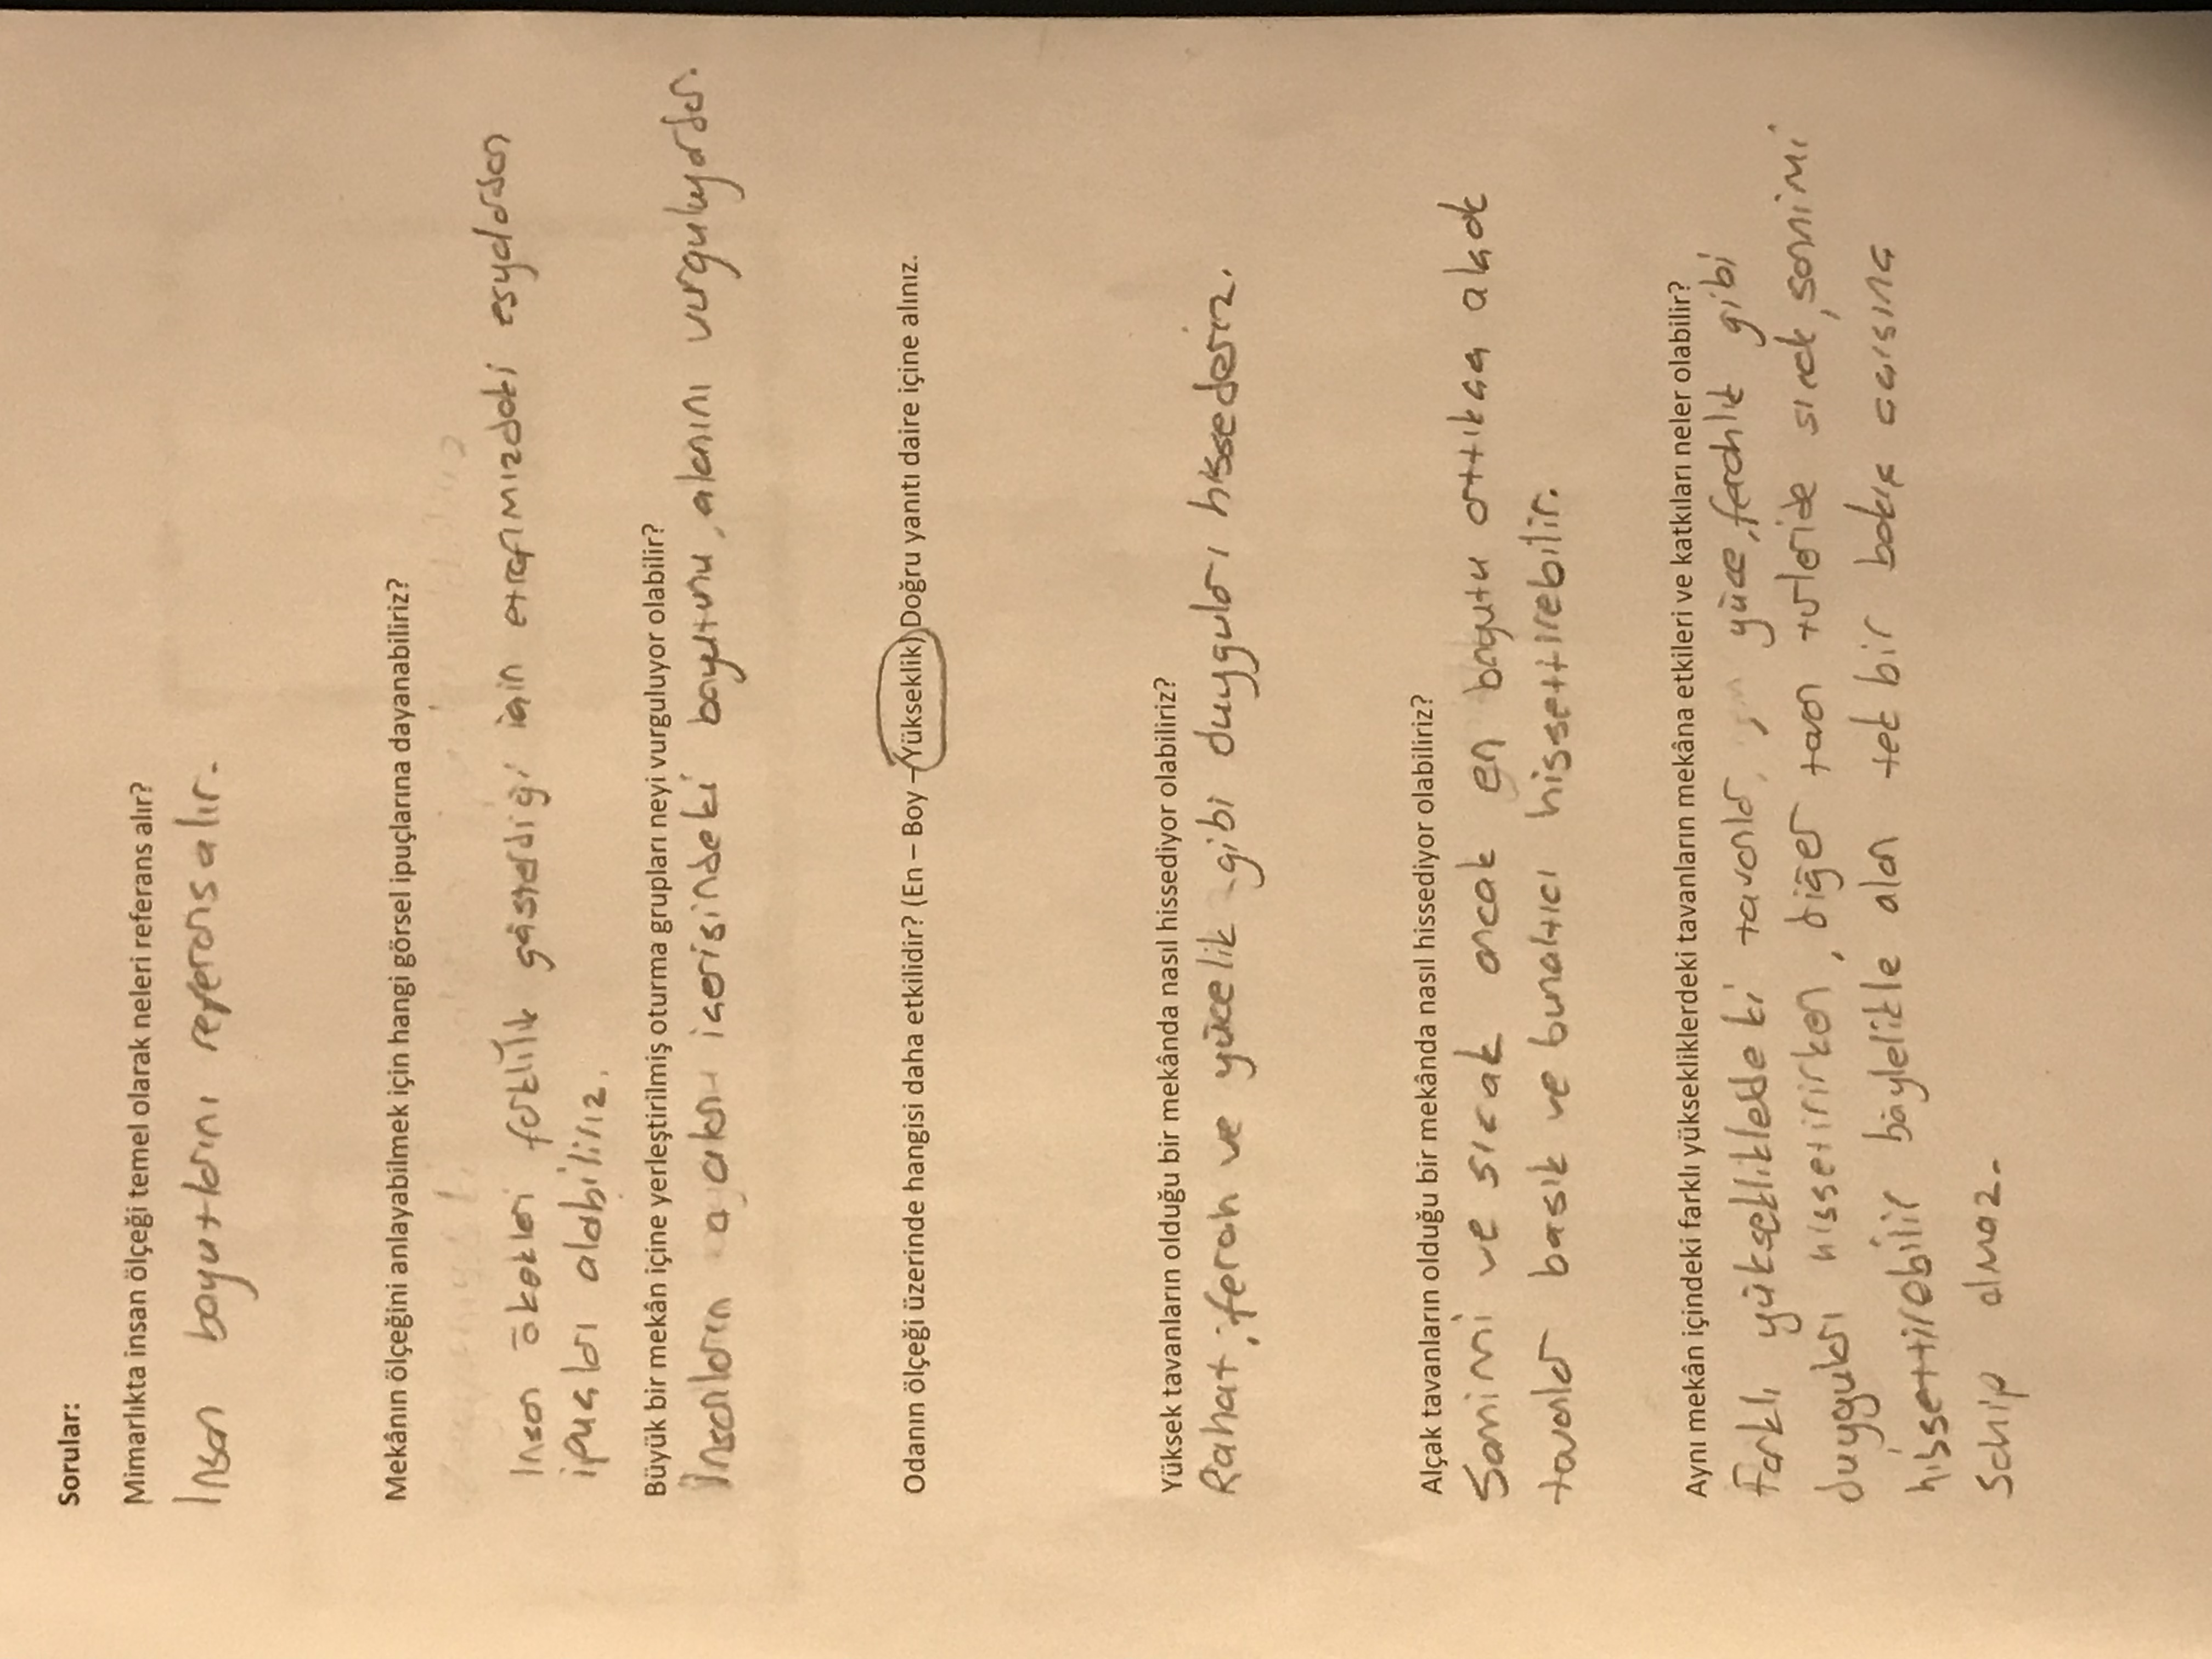 Sorular:
Mimarlıkta insan ölçeği temel olarak neleri referans alır?
İnsan boyutlarını referans alır.
Mekânın ölçeğini anlayabilmek için hangi görsel ipuçlarına dayanabiliriz?
İnsan ölçekleri farklılık gösterdiği için etrafımızdaki eşyalardan
ipuçları alabiliriz.
Büyük bir mekân içine yerleştirilmiş oturma grupları neyi vurguluyor olabilir?
İnsanların içerisindeki boyutunu, alanını vurguluyorlar.
Odanın ölçeği üzerinde hangisi daha etkilidir? (En – Boy – Yükseklik) Doğru yanıtı daire içine alınız.
Yüksek tavanların olduğu bir mekânda nasıl hissediyor olabiliriz?
Rahat, ferah ve yücelik gibi duyguları hissederiz.
Alçak tavanların olduğu bir mekânda nasıl hissediyor olabiliriz?
Samimi ve sıcak ancak en boyutu arttıkça alçak
tavanlar basık ve bunaltıcı hissettirebilir.
Aynı mekân içindeki farklı yüksekliklerdeki tavanların mekâna etkileri ve katkıları neler olabilir?
Farklı yüksekliklerdeki tavanlar, yüce, ferahlık gibi
duyguları hissetirirken, diğer tavan türleride sıcak, samimi
hissettirebilir böylelikle alan tek bir bakış açısına
sahip olmaz.